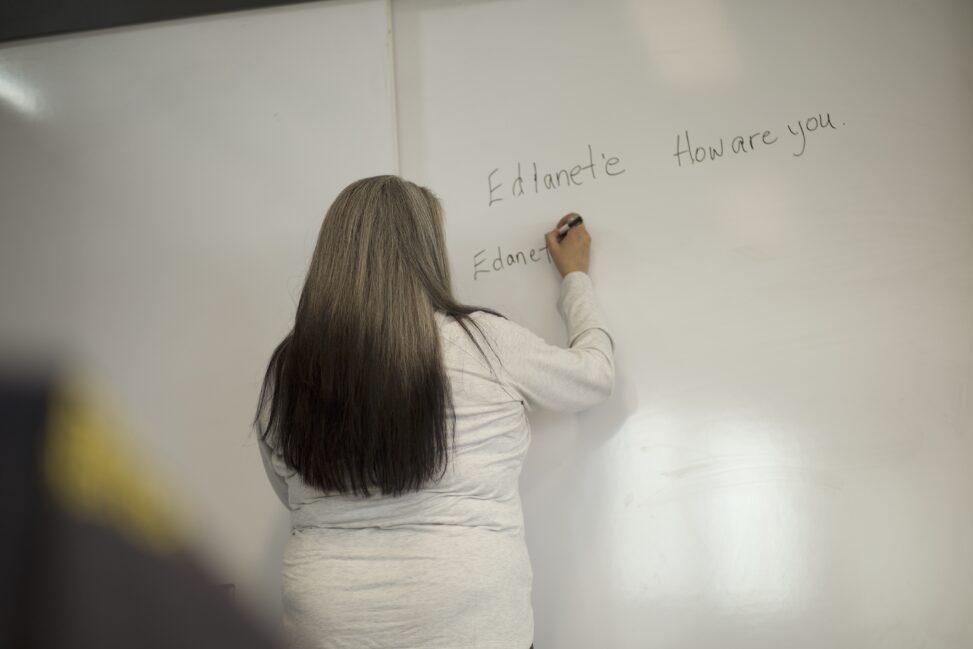 Edlanet'e How are you.
Edanet